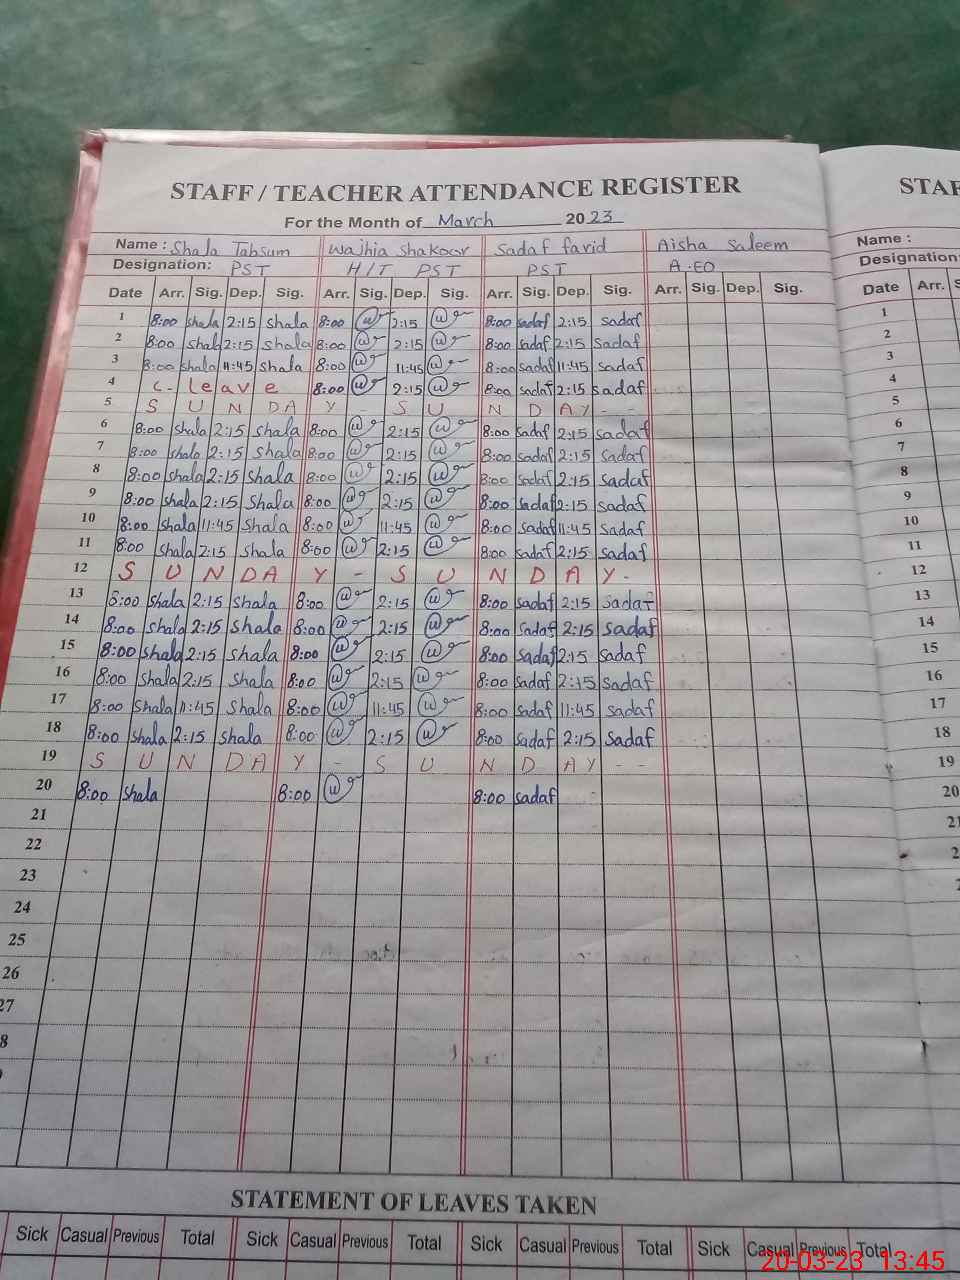 STAFF / TEACHER ATTENDANCE REGISTER STAF
For the Month of March 2023
Name : Shala Tabsum Wajhia Shakoor Sadaf farid Aisha Saleem Name :
Designation: PST H/T PST PST A.EO Designation:
Date Arr. Sig. Dep. Sig. Arr. Sig. Dep. Sig. Arr. Sig. Dep. Sig. Arr. Sig. Dep. Sig. Date Arr. S
1 8:00 shala 2:15 shala 8:00 2:15 8:00 sadaf 2:15 sadaf 1
2 8:00 shala 2:15 shala 8:00 2:15 8:00 sadaf 2:15 sadaf 2
3 8:00 shala 11:45 shala 8:00 11:45 8:00 sadaf 11:45 sadaf 3
4 C - leave 8:00 2:15 8:00 sadaf 2:15 sadaf 4
5 SUNDAY - SUNDAY - - 5
6 8:00 shala 2:15 shala 8:00 2:15 8:00 sadaf 2:15 sadaf 6
7 8:00 shala 2:15 shala 8:00 2:15 8:00 sadaf 2:15 sadaf 7
8 8:00 shala 2:15 shala 8:00 2:15 8:00 sadaf 2:15 sadaf 8
9 8:00 shala 2:15 shala 8:00 2:15 8:00 sadaf 2:15 sadaf 9
10 8:00 shala 11:45 shala 8:00 11:45 8:00 sadaf 11:45 sadaf 10
11 8:00 shala 2:15 shala 8:00 2:15 8:00 sadaf 2:15 sadaf 11
12 SUNDAY - SUNDAY - 12
13 8:00 shala 2:15 shala 8:00 2:15 8:00 sadaf 2:15 sadaf 13
14 8:00 shala 2:15 shala 8:00 2:15 8:00 sadaf 2:15 sadaf 14
15 8:00 shala 2:15 shala 8:00 2:15 8:00 sadaf 2:15 sadaf 15
16 8:00 shala 2:15 shala 8:00 2:15 8:00 sadaf 2:15 sadaf 16
17 8:00 shala 11:45 shala 8:00 11:45 8:00 sadaf 11:45 sadaf 17
18 8:00 shala 2:15 shala 8:00 2:15 8:00 sadaf 2:15 sadaf 18
19 SUNDAY - SUNDAY - - 19
20 8:00 shala 8:00 8:00 sadaf 20
21 21
22 22
23
24
25
26
27
8
STATEMENT OF LEAVES TAKEN
Sick Casual Previous Total Sick Casual Previous Total Sick Casual Previous Total Sick Casual Previous Total
20-03-23 13:45